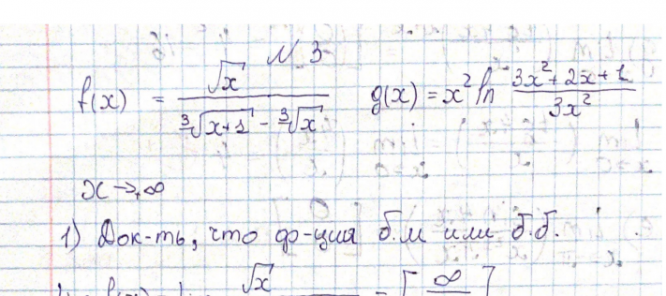 N 3
f(x) = √x / (∛(x+1) - ∛x) g(x) = x² ln (3x² + 2x + 1) / 3x²
x → +∞
1) Док-ть, что ф-ция б.м или б.б.
√x = [∞